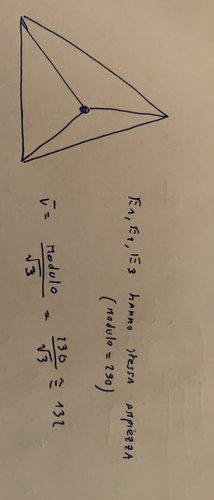 Ē1, Ē2, Ē3 hanno stessa ampiezza
(modulo = 230)
V̄ = modulo/√3 = 230/√3 ≅ 132